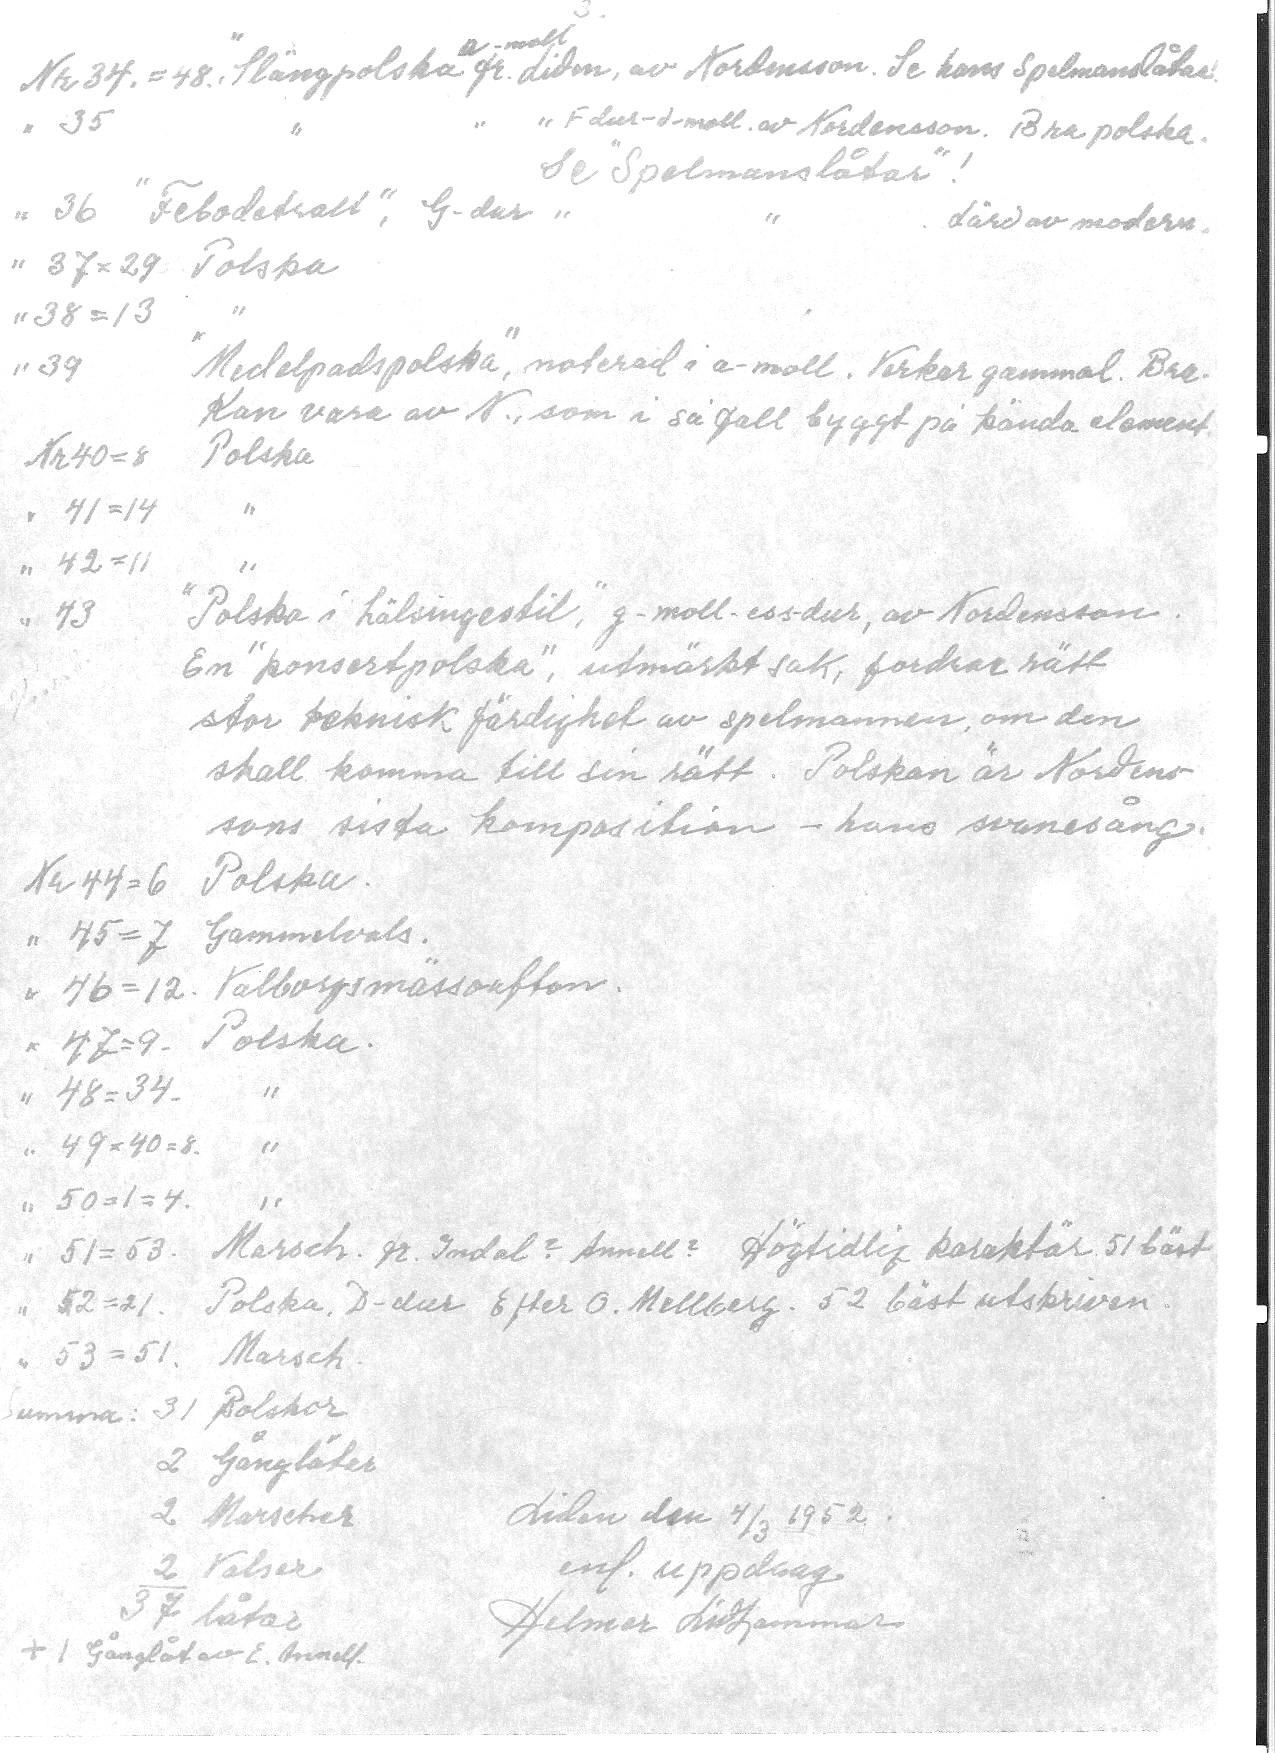 3.
Nr 34. = 48. "Slängpolska" a-moll fr. Liden, av Nordensson. Se hans Spelmanslåtar!
" 35 " " " F dur-d-moll. av Nordensson. Bra polska.
Se "Spelmanslåtar"!
" 36 "Febodetrall", G-dur " " Lärd av modern.
" 37 = 29 Polska
" 38 = 13 "
" 39 "Medelpadspolska", noterad i a-moll. Verkar gammal. Bra.
Kan vara av N., som i så fall byggt på kända element.
Nr 40 = 8 Polska
" 41 = 14 "
" 42 = 11 "
" 43 "Polska i hälsingestil," g-moll-ess-dur, av Nordensson.
En "konsertpolska", utmärkt sak, fordrar rätt
stor teknisk färdighet av spelmannen, om den
skall komma till sin rätt. Polskan är Nordens-
sons sista komposition - hans svanesång.
Nr 44 = 6 Polska.
" 45 = 7 Gammelvals.
" 46 = 12. Valborgsmässoafton.
" 47 = 9. Polska.
" 48 = 34. "
" 49 = 40 = 8. "
" 50 = 1 = 4. "
" 51 = 53. Marsch. fr. Indal? Annell? Högtidlig karaktär. 51 bäst
" 52 = 21. Polska, D-dur Efter O. Mellberg. 52 bäst utskriven.
" 53 = 51. Marsch.
Summa: 31 Polskor
2 Gånglåter
2 Marscher Liden den 4/3 1952.
2 Valser enl. uppdrag
37 låtar Helmer
+ 1 Gånglåt av E. Annell.